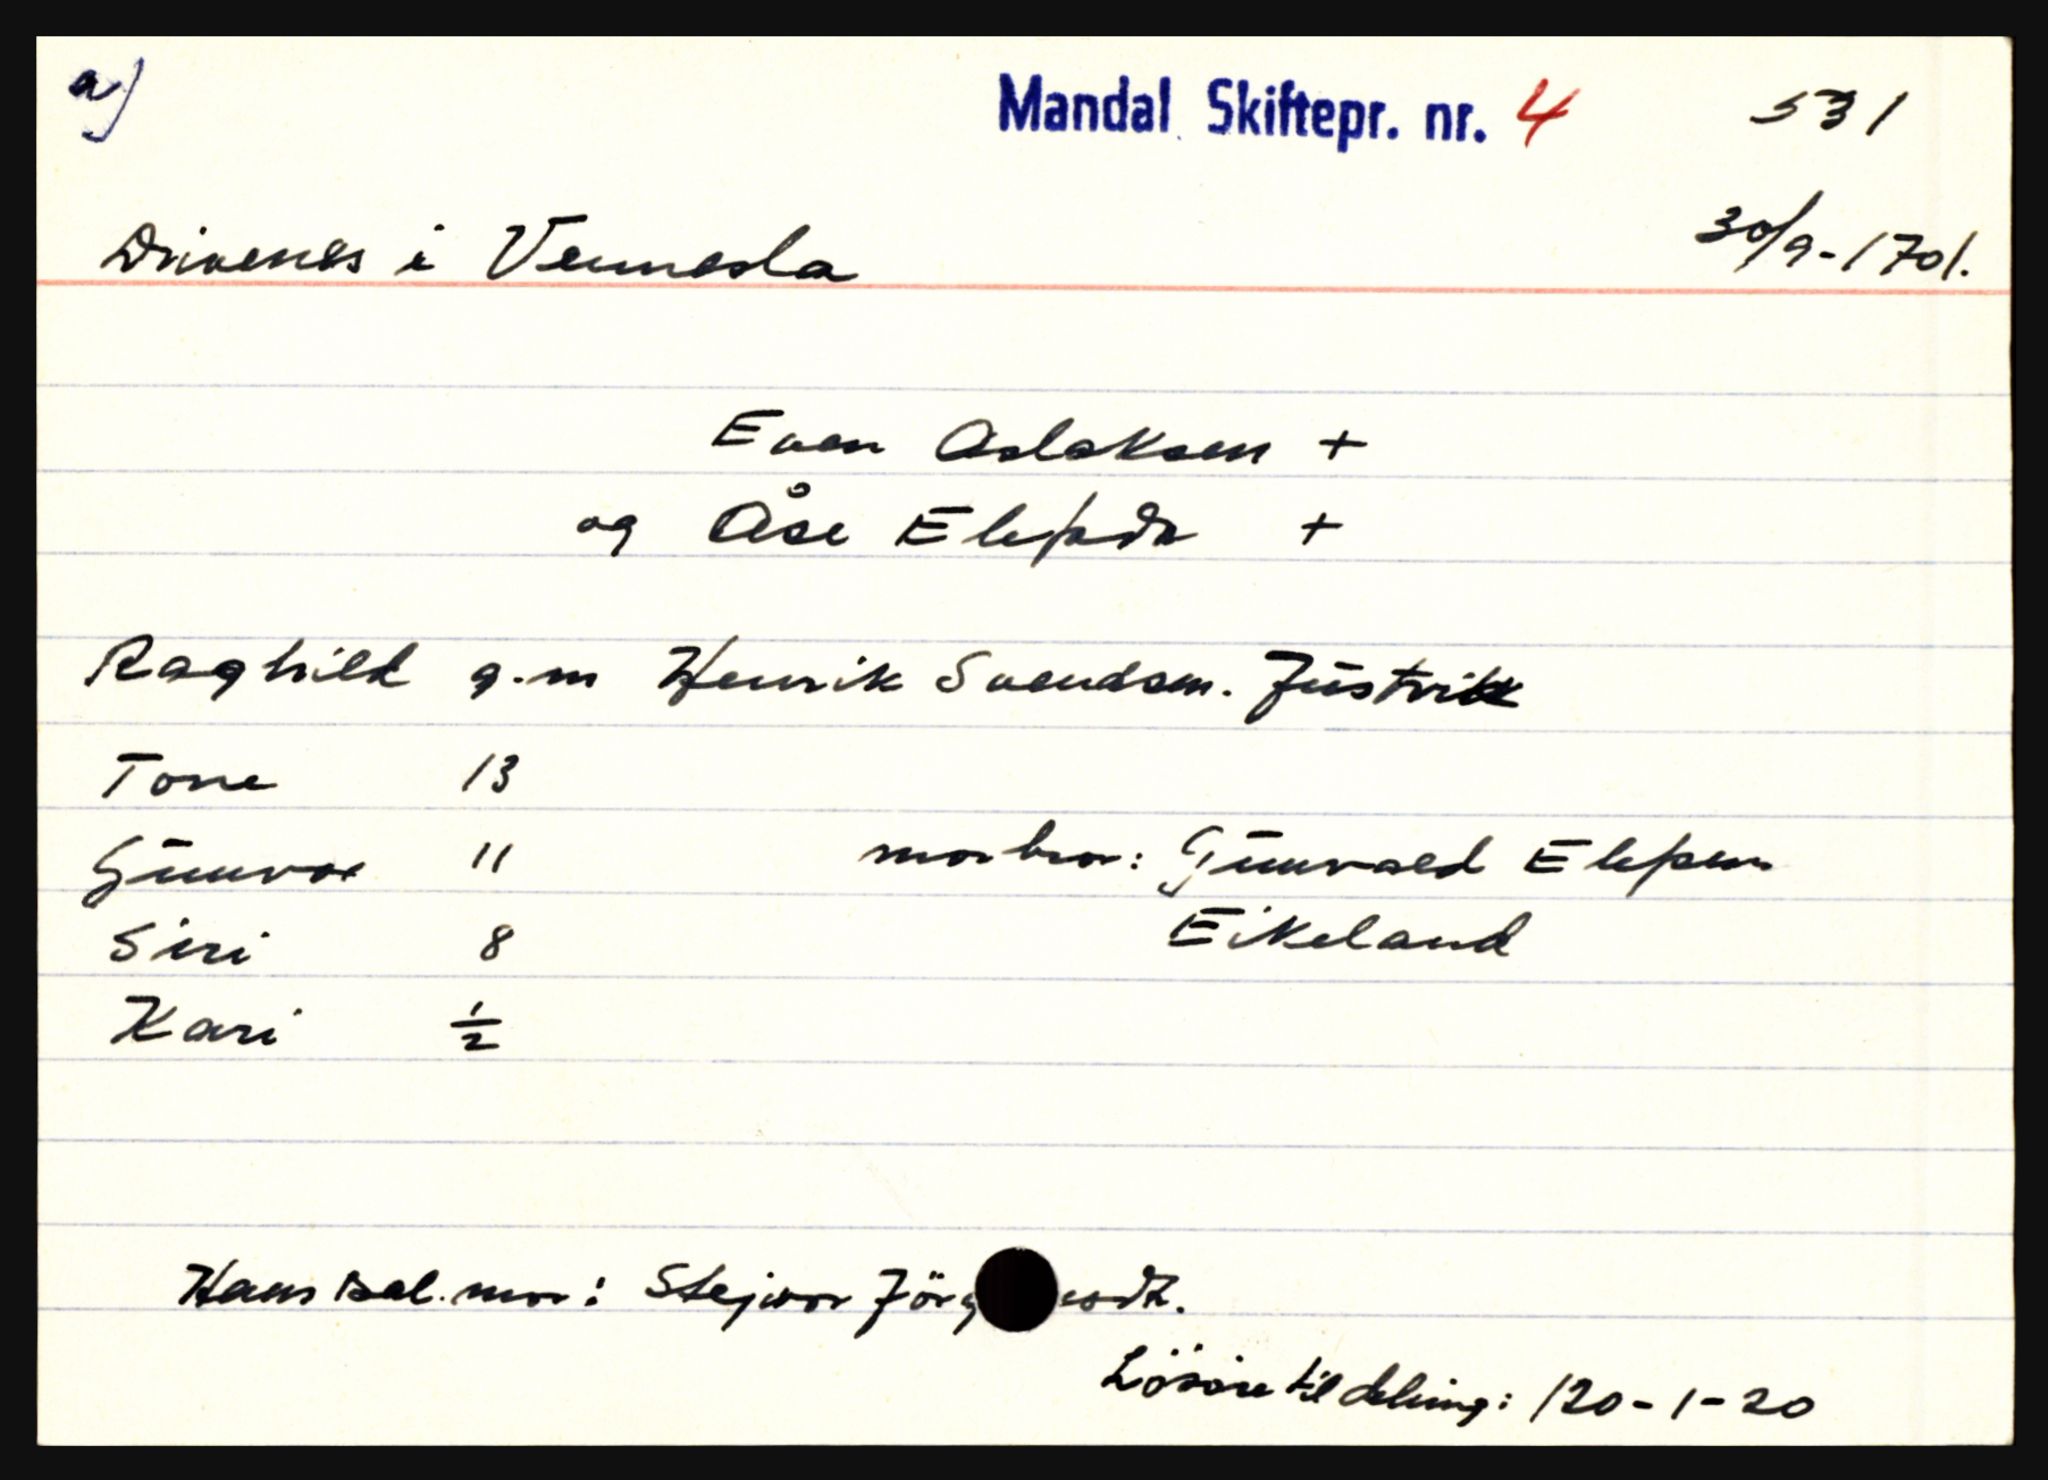 a)
Mandal Skiftepr. nr. 4 531
Drivenes i Vennesla 30/9-1701.
Even Aslaksen +
og Åse Elefsdr +
Raghild g.m Henrik Svendsen. Justvik
Tone 13
Gunvor 11 morbror: Gunvald Elefsen
Siri 8 Eikeland
Kari 1/2
Hans sal. mor: Stejvor Jörg esdt.
Lösöre til deling: 120-1-20